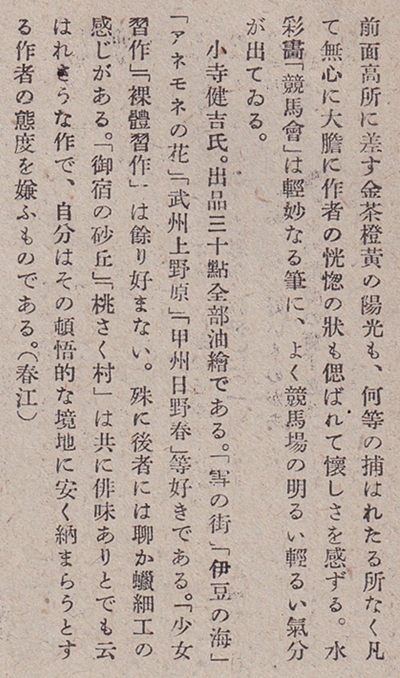 前面高所に差す金茶橙黃の陽光も、何等の捕はれたる所なく凡
て無心に大膽に作者の恍惚の狀も偲ばれて懷しさを感ずる。水
彩畫「競馬會」は輕妙なる筆に、よく競馬場の明るい輕るい氣分
が出てゐる。
小寺健吉氏。出品三十點全部油繪である。「雪の街」「伊豆の海」
「アネモネの花」「武州上野原」「甲州日野春」等好きである。「少女
習作」「裸體習作」は餘り好まない。殊に後者には聊か蠟細工の
感じがある。「御宿の砂丘」「桃さく村」は共に俳味ありとでも云
はれさうな作で、自分はその頓悟的な境地に安く納まらうとす
る作者の態度を嫌ふものである。(春江)